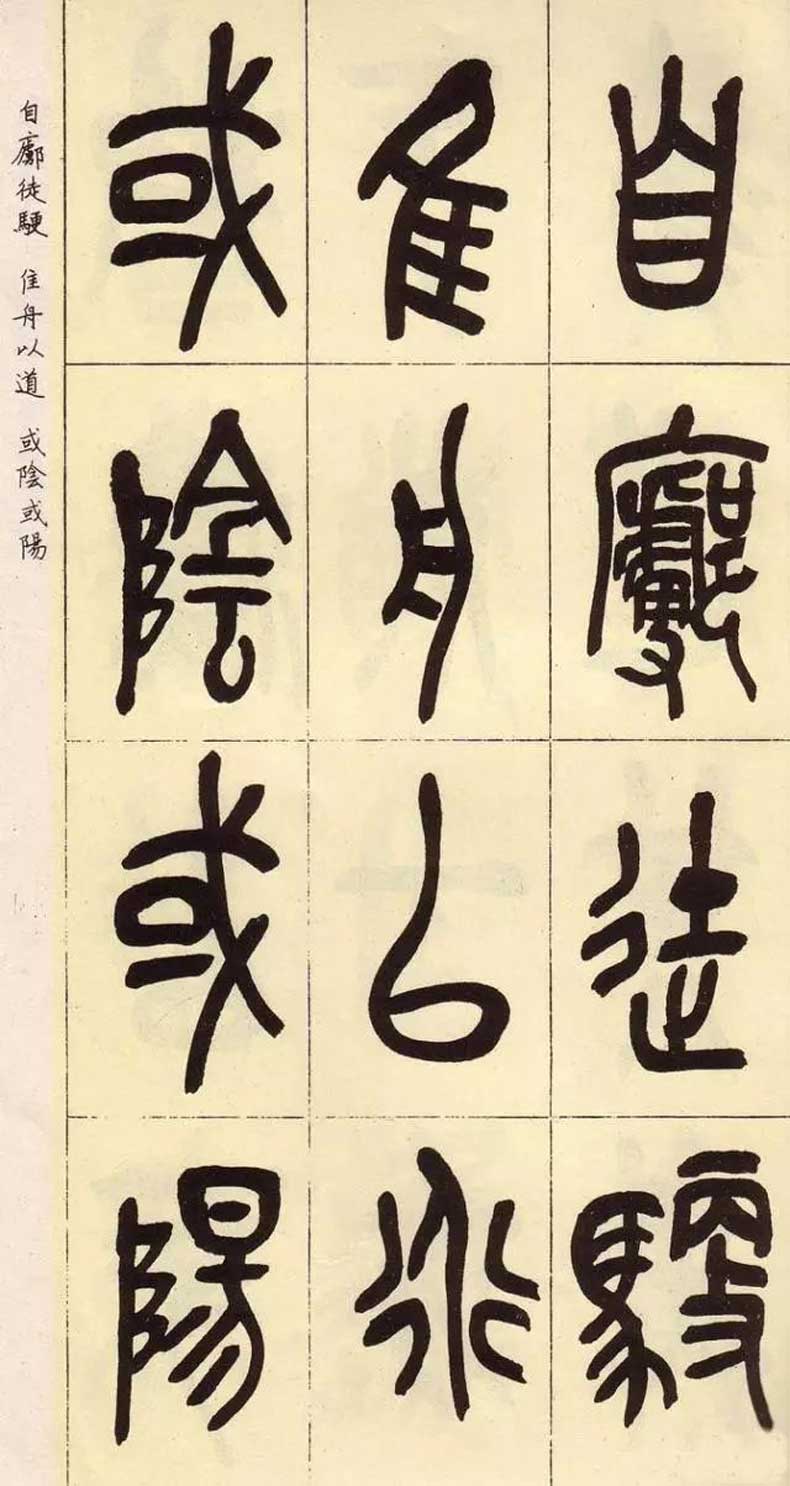 自徒
隹舟以道
或陰或陽
自徒 隹舟以道 或陰或陽